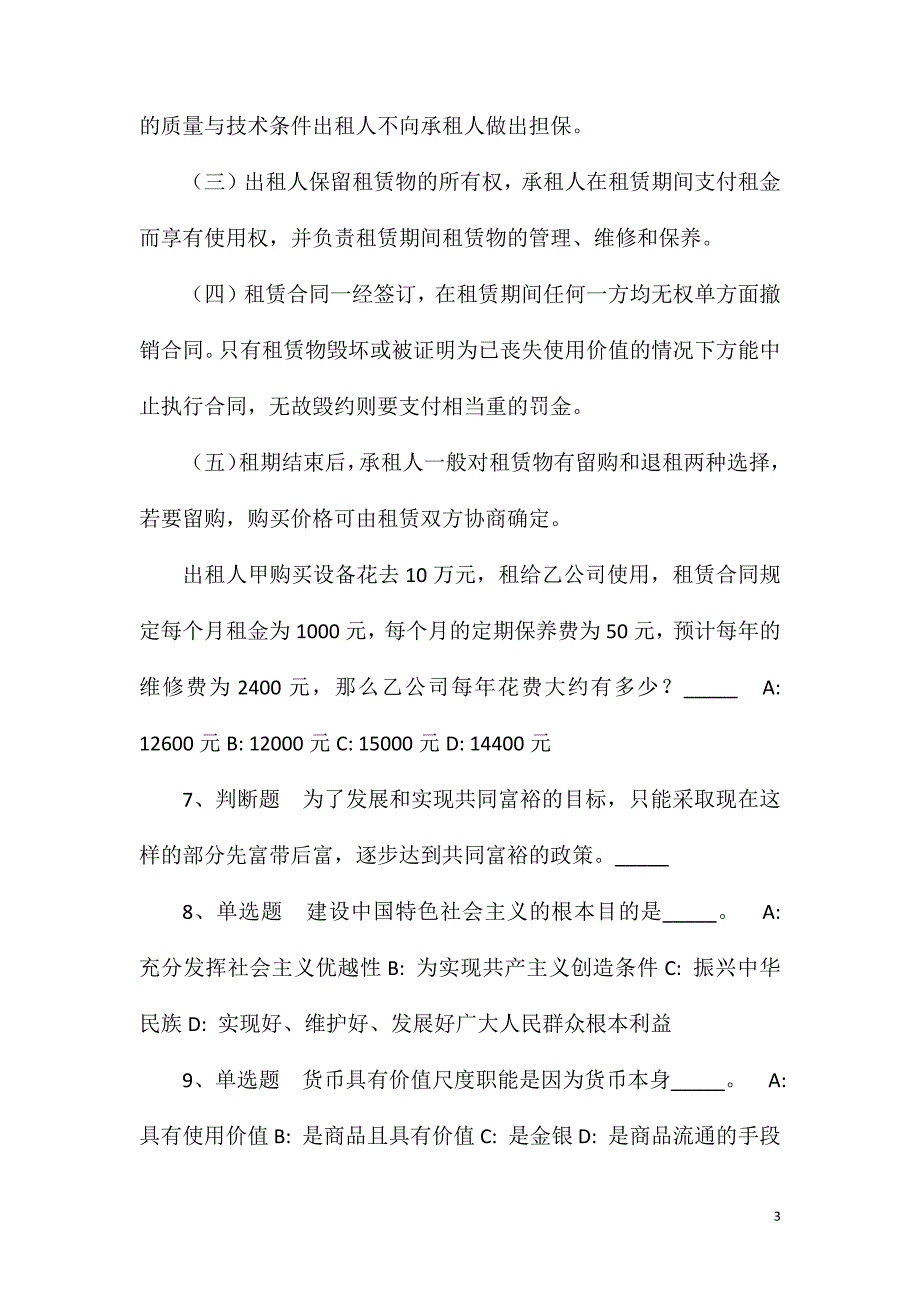 的质量与技术条件出租人不向承租人做出担保。
（三）出租人保留租赁物的所有权，承租人在租赁期间支付租金
而享有使用权，并负责租赁期间租赁物的管理、维修和保养。
（四）租赁合同一经签订，在租赁期间任何一方均无权单方面撤
销合同。只有租赁物毁坏或被证明为已丧失使用价值的情况下方能中
止执行合同，无故毁约则要支付相当重的罚金。
（五）租期结束后，承租人一般对租赁物有留购和退租两种选择，
若要留购，购买价格可由租赁双方协商确定。
出租人甲购买设备花去 10 万元，租给乙公司使用，租赁合同规
定每个月租金为 1000 元，每个月的定期保养费为 50 元，预计每年的
维修费为 2400 元，那么乙公司每年花费大约有多少？_____ A:
12600 元 B: 12000 元 C: 15000 元 D: 14400 元
7、判断题 为了发展和实现共同富裕的目标，只能采取现在这
样的部分先富带后富，逐步达到共同富裕的政策。_____
8、单选题 建设中国特色社会主义的根本目的是_____。 A:
充分发挥社会主义优越性 B: 为实现共产主义创造条件 C: 振兴中华
民族 D: 实现好、维护好、发展好广大人民群众根本利益
9、单选题 货币具有价值尺度职能是因为货币本身_____。 A:
具有使用价值 B: 是商品且具有价值 C: 是金银 D: 是商品流通的手段
3